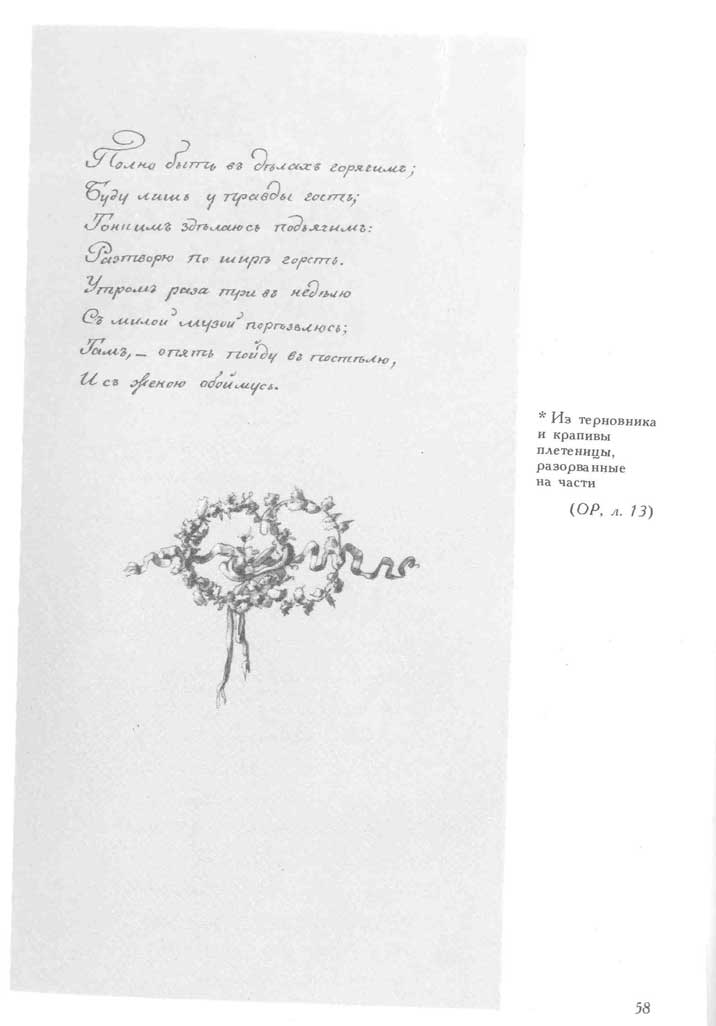 Полно быть въ дѣлахъ горячимъ;
Буду лишь у правды гость;
Тонкимъ здѣлаюсь подьячимъ:
Разтворю по ширѣ горсть.
Утромъ раза три въ недѣлю
Съ милой музой порѣзвлюсь;
Тамъ, — опять пойду въ постѣлю,
И съ женою обоймусь.
* Из терновника
и крапивы
плетеницы,
разорванные
на части
(ОР, л. 13)
58